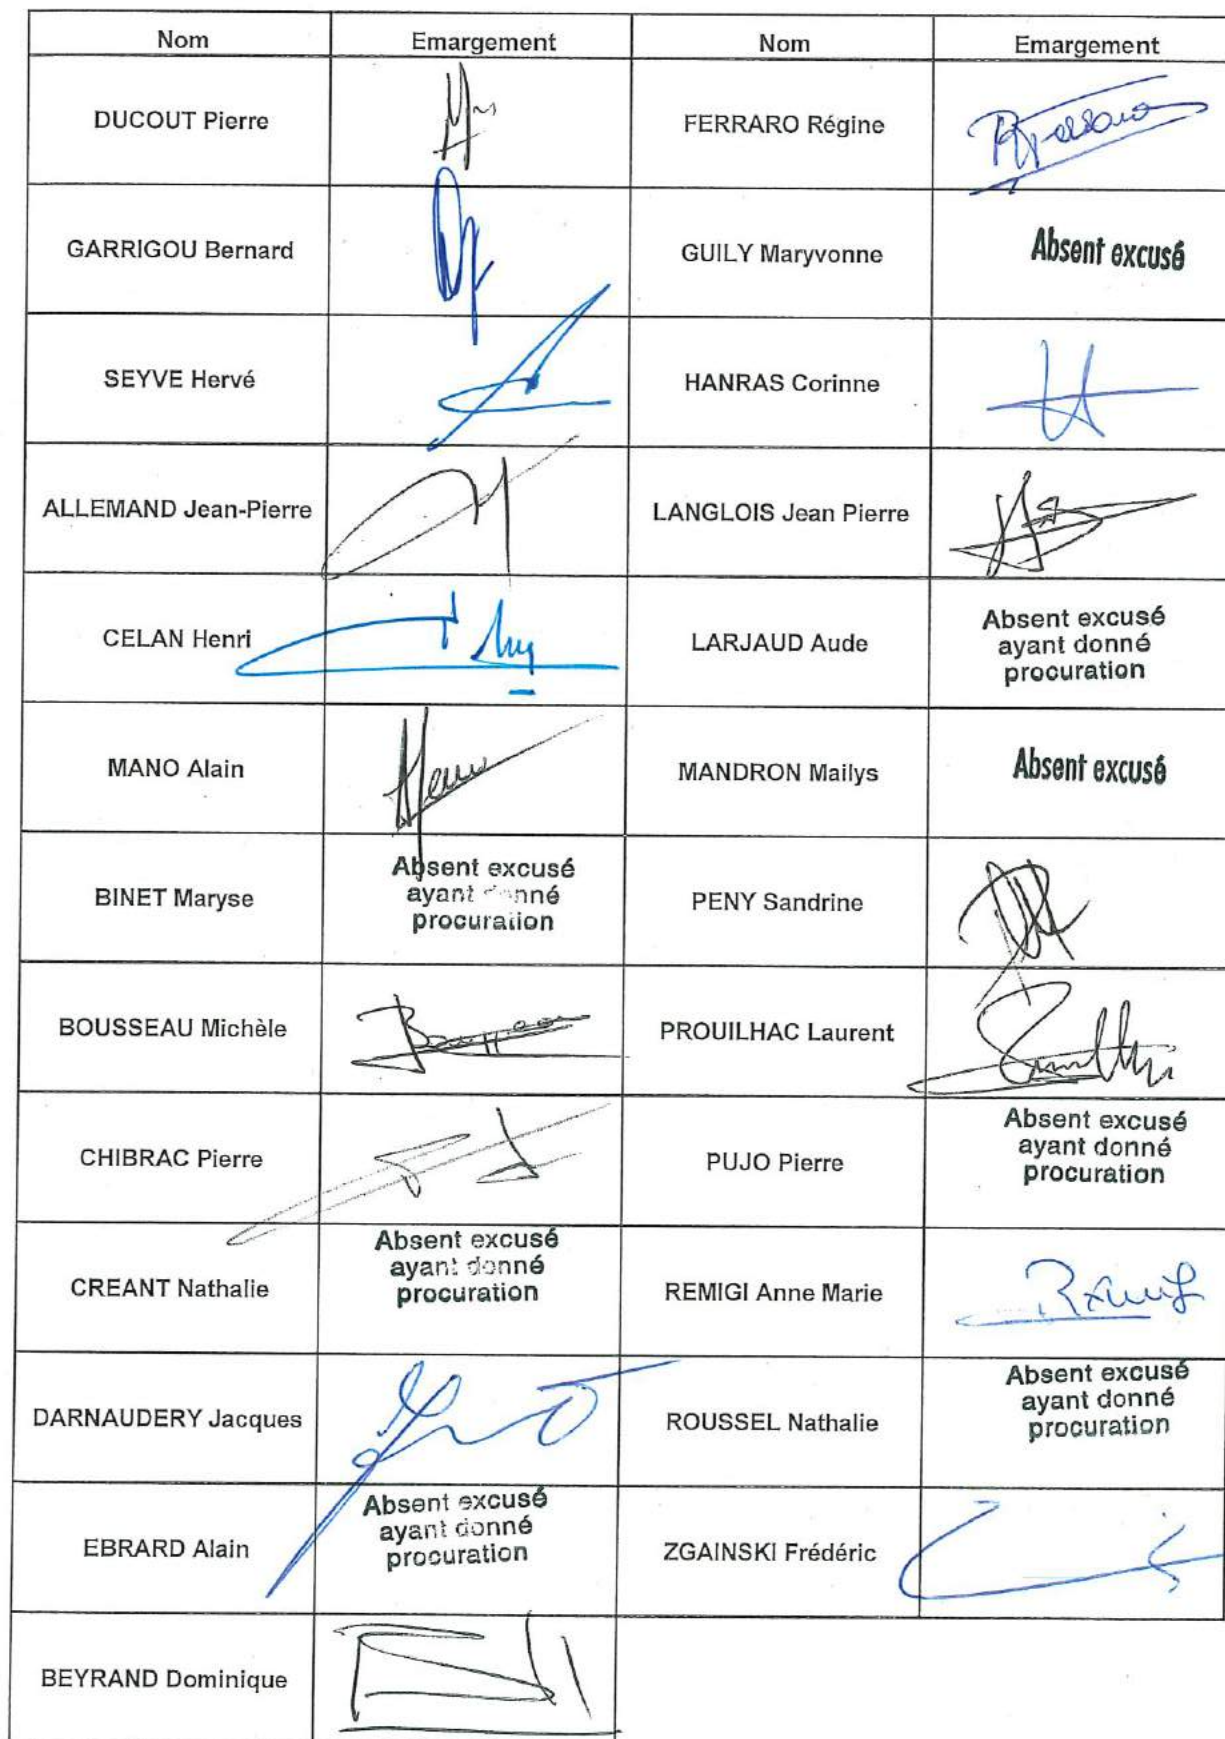 Nom Emargement Nom Emargement
DUCOUT Pierre FERRARO Régine
GARRIGOU Bernard GUILY Maryvonne Absent excusé
SEYVE Hervé HANRAS Corinne
ALLEMAND Jean-Pierre LANGLOIS Jean Pierre
CELAN Henri LARJAUD Aude Absent excusé
ayant donné
procuration
MANO Alain MANDRON Mailys Absent excusé
BINET Maryse Absent excusé
ayant donné
procuration
PENY Sandrine
BOUSSEAU Michèle PROUILHAC Laurent
CHIBRAC Pierre PUJO Pierre Absent excusé
ayant donné
procuration
CREANT Nathalie Absent excusé
ayant donné
procuration
REMIGI Anne Marie
DARNAUDERY Jacques ROUSSEL Nathalie Absent excusé
ayant donné
procuration
EBRARD Alain Absent excusé
ayant donné
procuration
ZGAINSKI Frédéric
BEYRAND Dominique